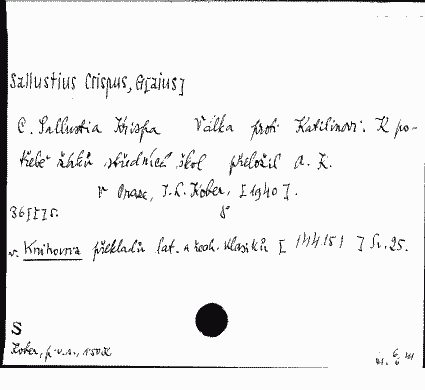 Sallustius Crispus, G[aius]
C. Sallustia Krispa Válka proti Katilinovi. K po-
třebě žáků středních škol přeložil A. K.
V Praze, I. L. Kober, [1940].
36[I]s. 8°
v. Knihovna překladů lat. a řech. klasiků [ ] Sv. 25.
S
Kober,